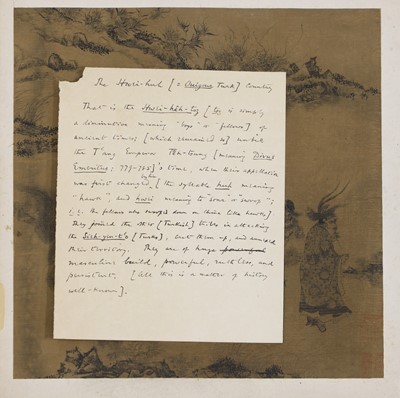 The Hwei-huh [= Ouigour Turk] Country
That is the Hwei-hêh-tsz [tsz is simply
a diminutive meaning "boys" or "fellows"] of
ancient times; [which remained so] until
the T'ang Emperor Têh-tsung [meaning
Emeritus; 779-
was first changed, [the syllable huh meaning
"hawk", and hwei meaning to "soar" or "swoop";
the fellows who swoops down on China like hawks]
They joined the other [Turkish] tribes in attacking
the Sieh-yen-t'o [Turks], beat them up, and annexed
their territory. They are of huge
masculine build, powerful, ruthless, and
persistent. [All this is a matter of history
well-known].